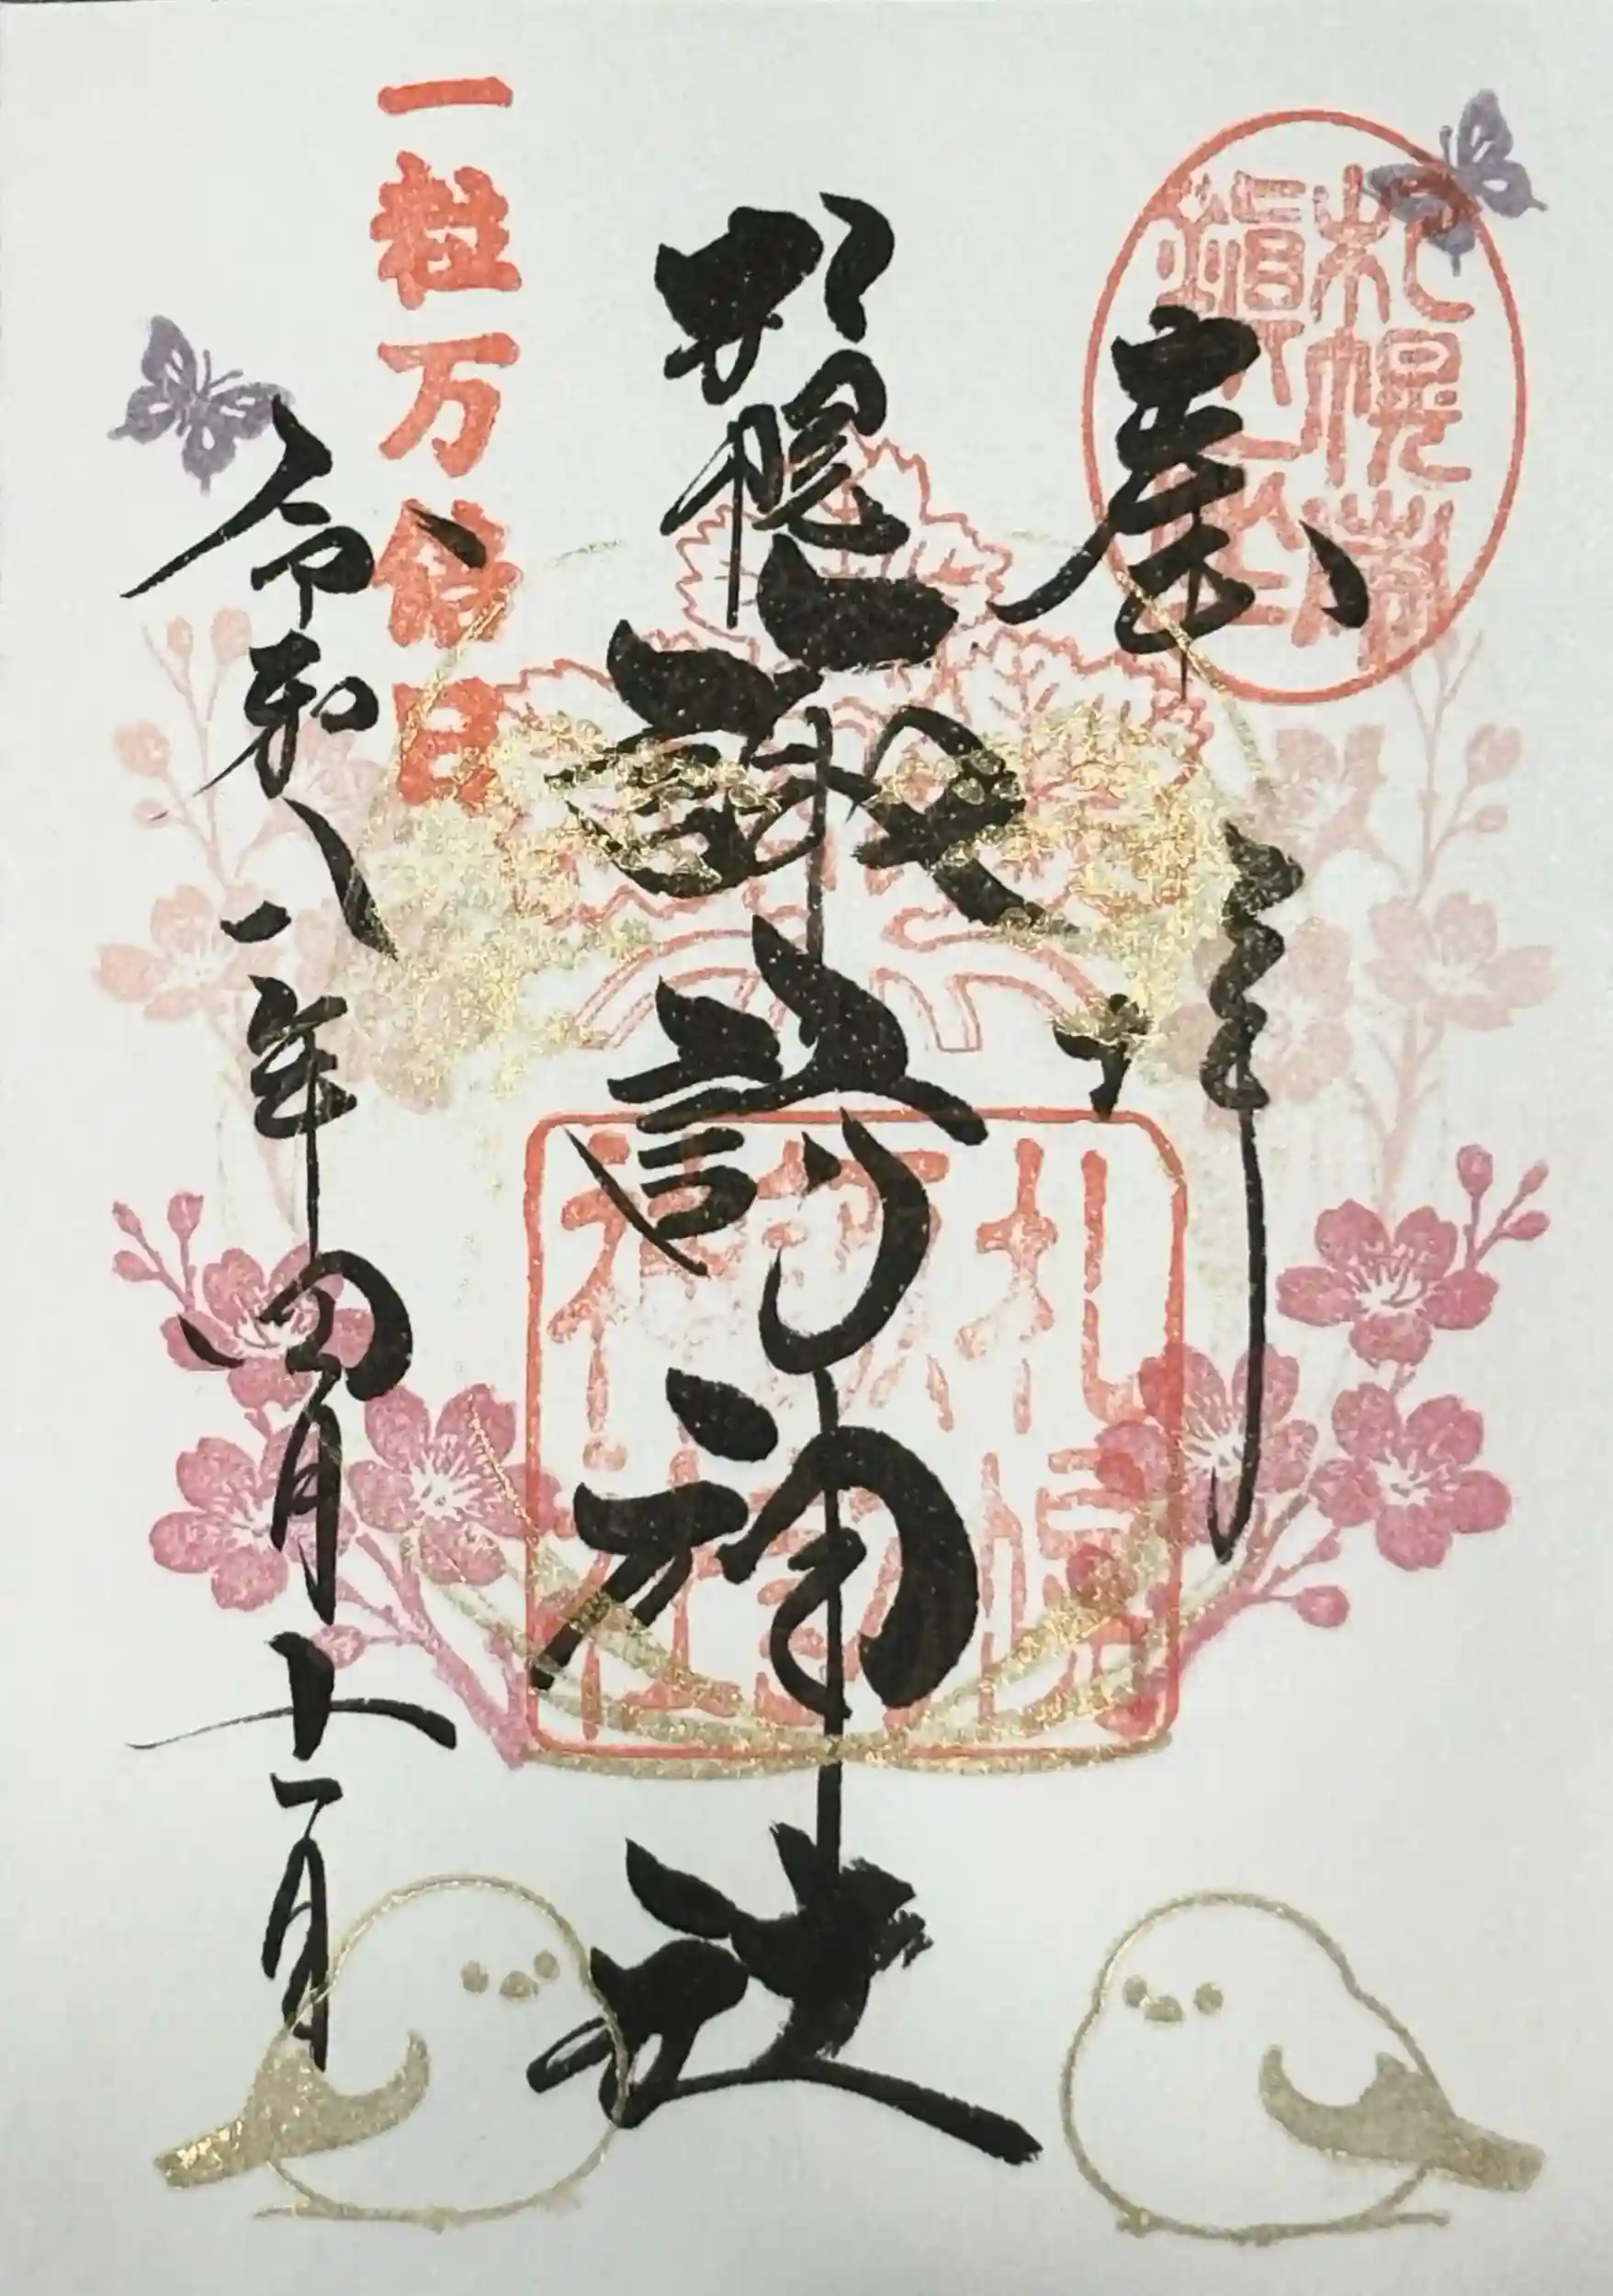 奉拝
札幌諏訪神社
札幌
諏訪
神社
一粒万倍日
令和八年四月十一日